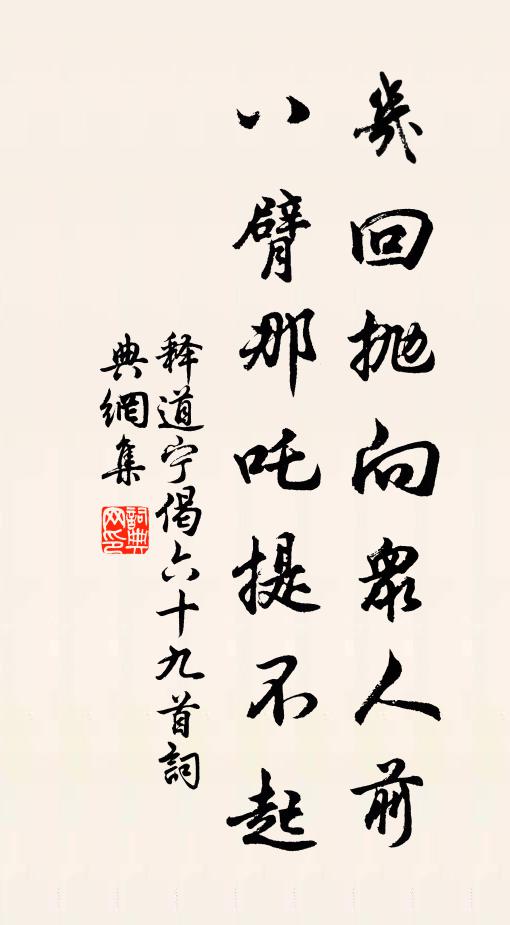 幾回抛向眾人前
八臂那吒提不起
释道宁偈六十九首詞
典網集
詞典网印